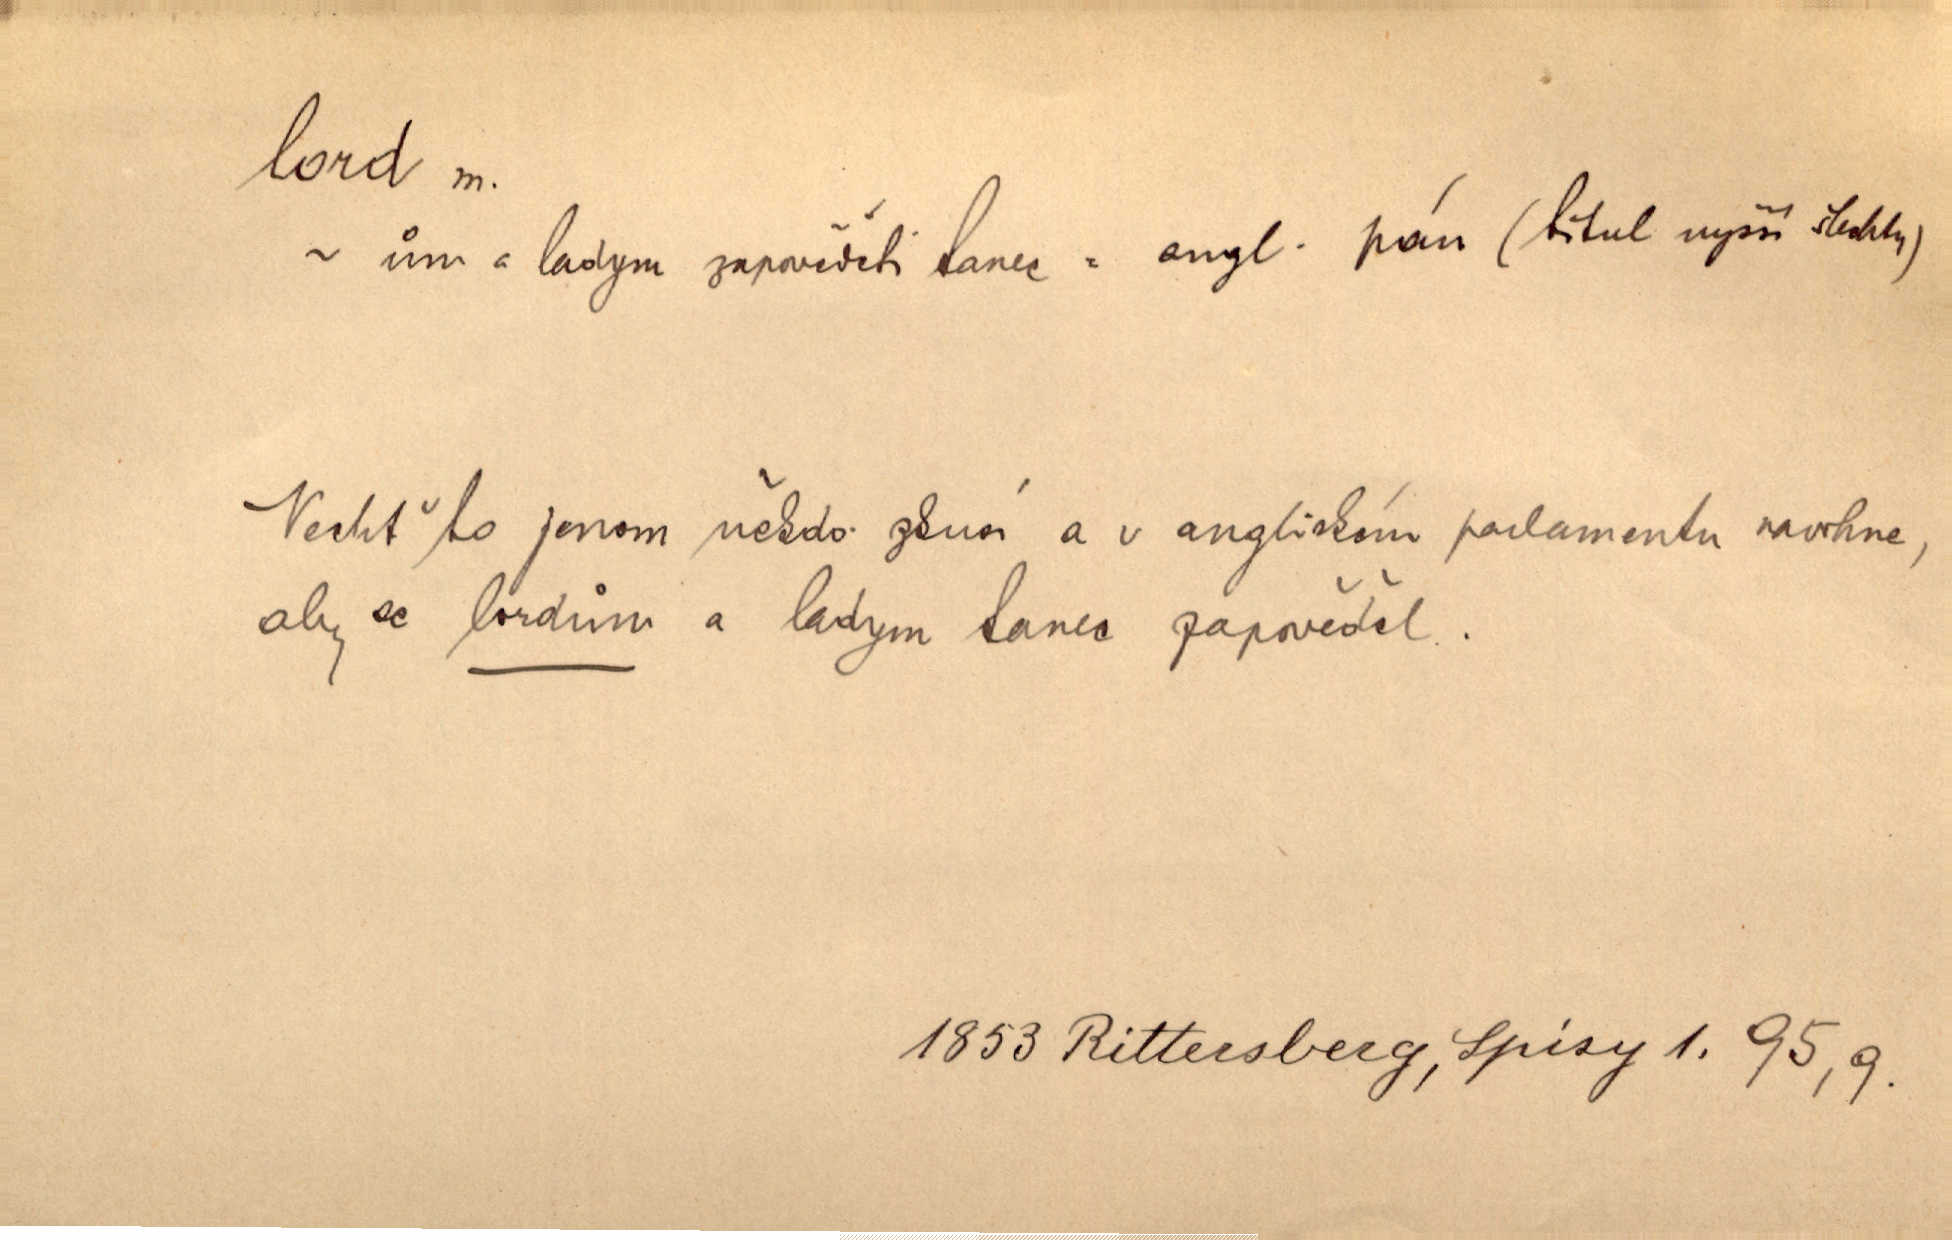 lord m.
~ ům a ladym zapověděti tanec = angl. pán (titul vyšší šlechty)
Nechť to jenom někdo zkusí a v anglickém parlamentu navrhne,
aby se lordům a ladym tanec zapověděl.
1853 Rittersberg, Spisy 1. 95, 9.